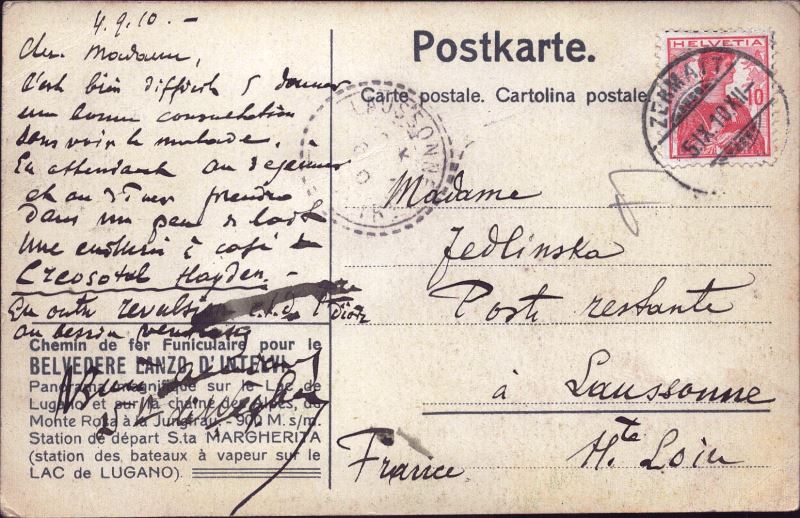 4.9.10.-
Postkarte.
Carte postale. Cartolina postale.
HELVETIA
10
ZERMATT
5.IX.10.XII-
LAUSSONNE
Che. Madame,
C'est bien difficile d donner
une bonne consultation
sans voir le malade.
En attendant au dejeuner
et au diner prendre
dans un peu de lait
une cuillerée à café de
Creosotal Hayden. -
En outre revulsion c.t.d.
au besoin
Madame
Jedlinska
Poste restante
à Laussonne
Hte Loire
France
Chemin de fer Funiculaire pour le
BELVEDERE LANZO D'INTELVI
Panorama magnifique sur le Lac de
Lugano et sur la chaîne des Alpes, du
Monte Rosa à la Jungfrau - 900 M. s/m.
Station de départ S.ta MARGHERITA
(station des bateaux à vapeur sur le
LAC de LUGANO).